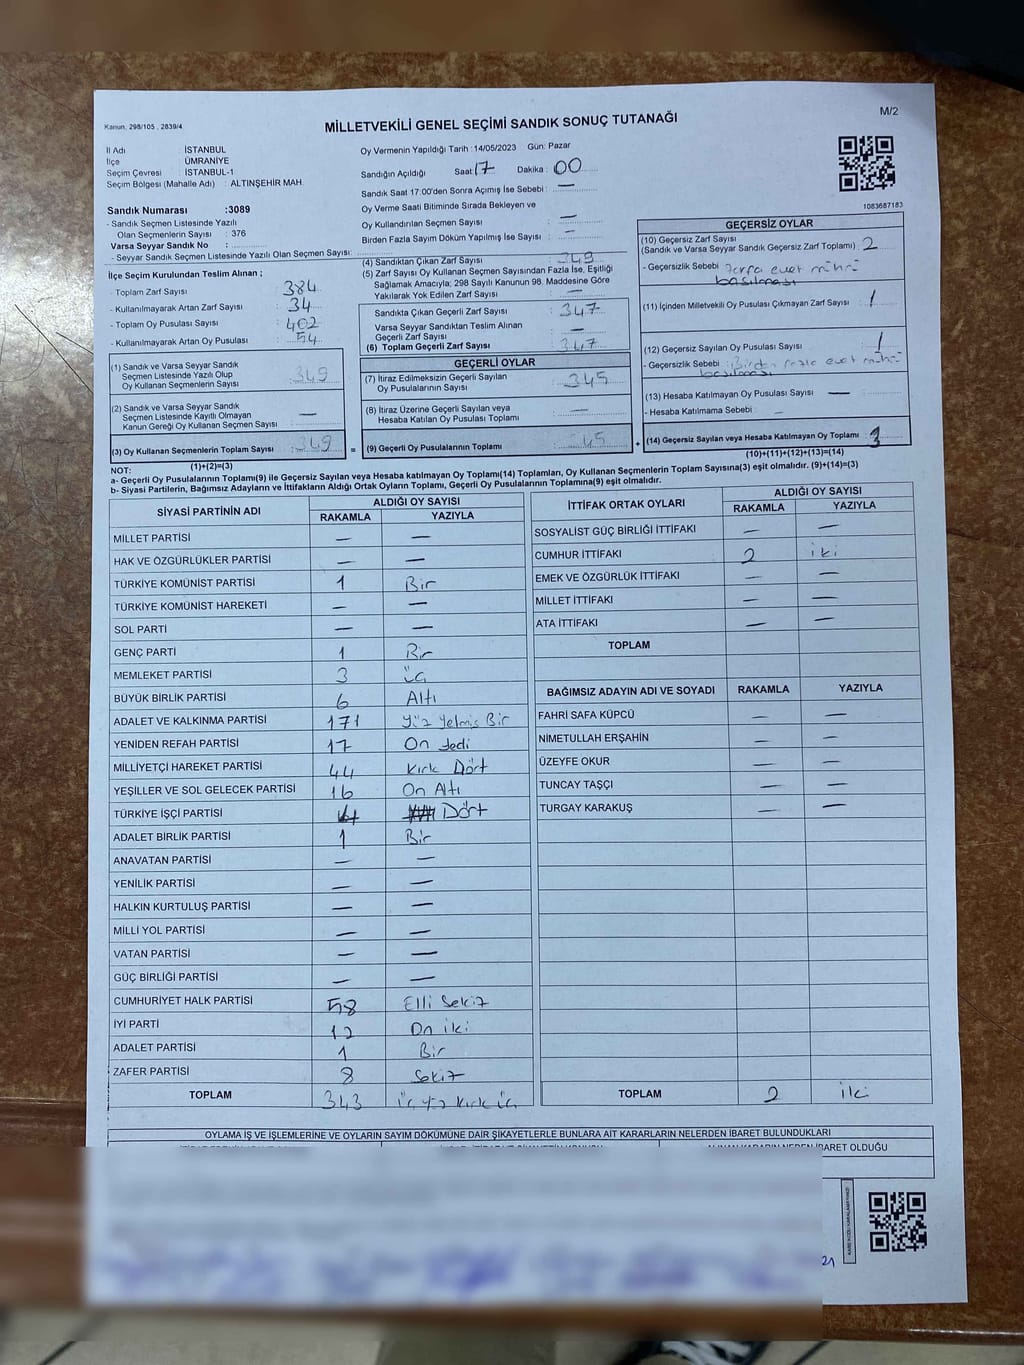 Kanun, 298/105 , 2839/4
MİLLETVEKİLİ GENEL SEÇİMİ SANDIK SONUÇ TUTANAĞI
M/2
İl Adı İSTANBUL
İlçe ÜMRANİYE
Seçim Çevresi : İSTANBUL-1
Seçim Bölgesi (Mahalle Adı) : ALTINŞEHİR MAH.
Sandık Numarası :3089
- Sandık Seçmen Listesinde Yazılı
Olan Seçmenlerin Sayısı : 376
Varsa Seyyar Sandık No :
- Seyyar Sandık Seçmen Listesinde Yazılı Olan Seçmen Sayısı:
Oy Vermenin Yapıldığı Tarih :14/05/2023 Gün: Pazar
Sandığın Açıldığı Saat: 17 Dakika : 00
Sandık Saat 17:00'den Sonra Açımış İse Sebebi : —
Oy Verme Saati Bitiminde Sırada Bekleyen ve
Oy Kullandırılan Seçmen Sayısı : —
Birden Fazla Sayım Döküm Yapılmış İse Sayısı : —
1083687183
İlçe Seçim Kurulundan Teslim Alınan ;
- Toplam Zarf Sayısı : 384
- Kullanılmayarak Artan Zarf Sayısı : 34
- Toplam Oy Pusulası Sayısı : 402
- Kullanılmayarak Artan Oy Pusulası : 54
(1) Sandık ve Varsa Seyyar Sandık
Seçmen Listesinde Yazılı Olup
Oy Kullanan Seçmenlerin Sayısı : 349
(2) Sandık ve Varsa Seyyar Sandık
Seçmen Listesinde Kayıtlı Olmayan
Kanun Gereği Oy Kullanan Seçmen Sayısı : —
(3) Oy Kullanan Seçmenlerin Toplam Sayısı : 349
(1)+(2)=(3)
(4) Sandıktan Çıkan Zarf Sayısı : 349
(5) Zarf Sayısı Oy Kullanan Seçmen Sayısından Fazla İse, Eşitliği
Sağlamak Amacıyla; 298 Sayılı Kanunun 98. Maddesine Göre
Yakılarak Yok Edilen Zarf Sayısı : —
Sandıkta Çıkan Geçerli Zarf Sayısı : 347
Varsa Seyyar Sandıktan Teslim Alınan
Geçerli Zarf Sayısı : —
(6) Toplam Geçerli Zarf Sayısı : 347
GEÇERLİ OYLAR
(7) İtiraz Edilmeksizin Geçerli Sayılan
Oy Pusulalarının Sayısı : 345
(8) İtiraz Üzerine Geçerli Sayılan veya
Hesaba Katılan Oy Pusulası Toplamı : —
= (9) Geçerli Oy Pusulalarının Toplamı : 345
GEÇERSİZ OYLAR
(10) Geçersiz Zarf Sayısı
(Sandık ve Varsa Seyyar Sandık Geçersiz Zarf Toplamı) : 2
- Geçersizlik Sebebi : Zarfa evet mührü
basılması
(11) İçinden Milletvekili Oy Pusulası Çıkmayan Zarf Sayısı : 1
(12) Geçersiz Sayılan Oy Pusulası Sayısı : 1
- Geçersizlik Sebebi : Birden fazla evet mührü
basılması
(13) Hesaba Katılmayan Oy Pusulası Sayısı : —
- Hesaba Katılmama Sebebi : —
+ (14) Geçersiz Sayılan veya Hesaba Katılmayan Oy Toplamı : 3
(10)+(11)+(12)+(13)=(14)
NOT:
a- Geçerli Oy Pusulalarının Toplamı(9) ile Geçersiz Sayılan veya Hesaba katılmayan Oy Toplamı(14) Toplamları, Oy Kullanan Seçmenlerin Toplam Sayısına(3) eşit olmalıdır. (9)+(14)=(3)
b- Siyasi Partilerin, Bağımsız Adayların ve İttifakların Aldığı Ortak Oyların Toplamı, Geçerli Oy Pusulalarının Toplamına(9) eşit olmalıdır.
SİYASİ PARTİNİN ADI ALDIĞI OY SAYISI
RAKAMLA YAZIYLA
MİLLET PARTİSİ — —
HAK VE ÖZGÜRLÜKLER PARTİSİ — —
TÜRKİYE KOMÜNİST PARTİSİ 1 Bir
TÜRKİYE KOMÜNİST HAREKETİ — —
SOL PARTİ — —
GENÇ PARTİ 1 Bir
MEMLEKET PARTİSİ 3 Üç
BÜYÜK BİRLİK PARTİSİ 6 Altı
ADALET VE KALKINMA PARTİSİ 171 Yüz Yetmiş Bir
YENİDEN REFAH PARTİSİ 17 On Yedi
MİLLİYETÇİ HAREKET PARTİSİ 44 Kırk Dört
YEŞİLLER VE SOL GELECEK PARTİSİ 16 On Altı
TÜRKİYE İŞÇİ PARTİSİ 4 Dört
ADALET BİRLİK PARTİSİ 1 Bir
ANAVATAN PARTİSİ — —
YENİLİK PARTİSİ — —
HALKIN KURTULUŞ PARTİSİ — —
MİLLİ YOL PARTİSİ — —
VATAN PARTİSİ — —
GÜÇ BİRLİĞİ PARTİSİ — —
CUMHURİYET HALK PARTİSİ 58 Elli Sekiz
İYİ PARTİ 12 On iki
ADALET PARTİSİ 1 Bir
ZAFER PARTİSİ 8 Sekiz
TOPLAM 343 üç yüz kırk üç
İTTİFAK ORTAK OYLARI ALDIĞI OY SAYISI
RAKAMLA YAZIYLA
SOSYALİST GÜÇ BİRLİĞİ İTTİFAKI — —
CUMHUR İTTİFAKI 2 iki
EMEK VE ÖZGÜRLÜK İTTİFAKI — —
MİLLET İTTİFAKI — —
ATA İTTİFAKI — —
TOPLAM
BAĞIMSIZ ADAYIN ADI VE SOYADI RAKAMLA YAZIYLA
FAHRİ SAFA KÜPCÜ — —
NİMETULLAH ERŞAHİN — —
ÜZEYFE OKUR — —
TUNCAY TAŞÇI — —
TURGAY KARAKUŞ — —
TOPLAM 2 iki
OYLAMA İŞ VE İŞLEMLERİNE VE OYLARIN SAYIM DÖKÜMÜNE DAİR ŞİKAYETLERLE BUNLARA AİT KARARLARIN NELERDEN İBARET BULUNDUKLARI
ALINAN KARARIN NEDEN İBARET OLDUĞU
21